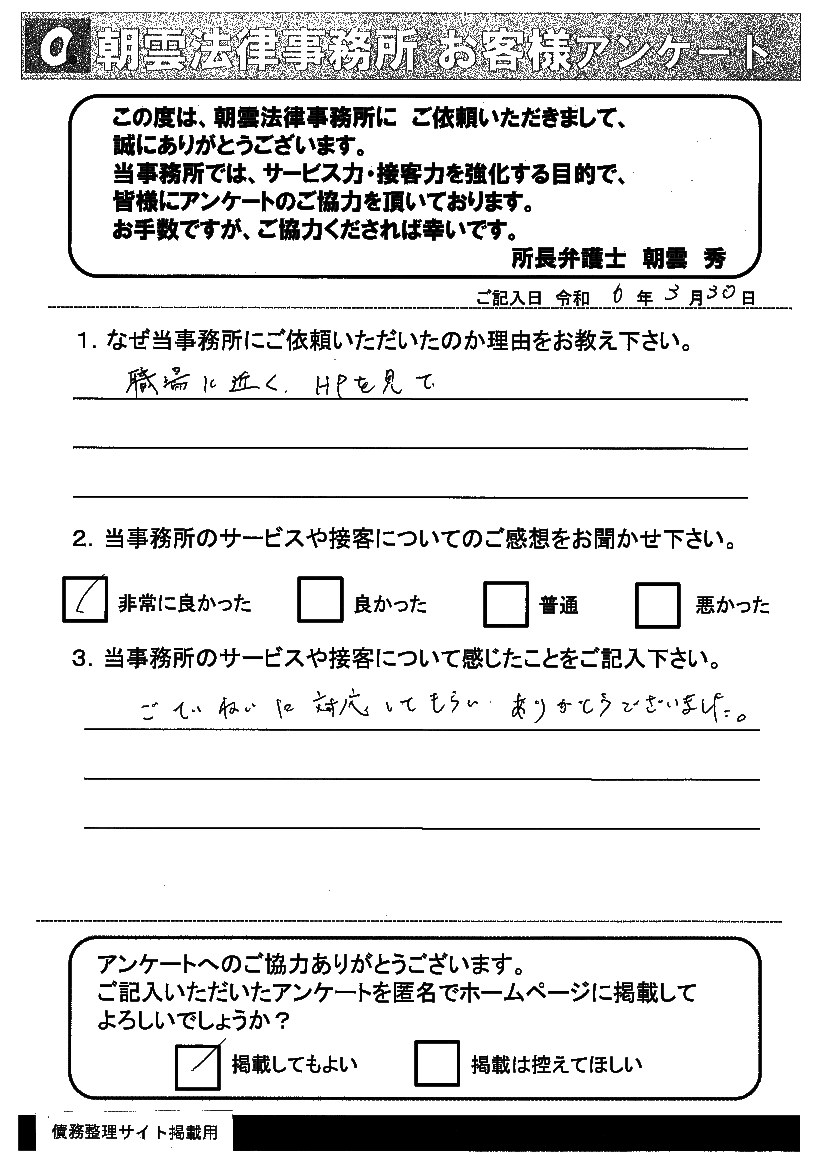 a 朝雲法律事務所 お客様アンケート
この度は、朝雲法律事務所に ご依頼いただきまして、
誠にありがとうございます。
当事務所では、サービス力・接客力を強化する目的で、
皆様にアンケートのご協力を頂いております。
お手数ですが、ご協力くだされば幸いです。
所長弁護士 朝雲 秀
ご記入日 令和 6 年 3 月 30 日
1. なぜ当事務所にご依頼いただいたのか理由をお教え下さい。
職場に近く、HPを見て
2. 当事務所のサービスや接客についてのご感想をお聞かせ下さい。
非常に良かった 良かった 普通 悪かった
3. 当事務所のサービスや接客について感じたことをご記入下さい。
ごていねいに対応してもらい、ありがとうございました。
アンケートへのご協力ありがとうございます。
ご記入いただいたアンケートを匿名でホームページに掲載して
よろしいでしょうか?
掲載してもよい 掲載は控えてほしい
債務整理サイト掲載用